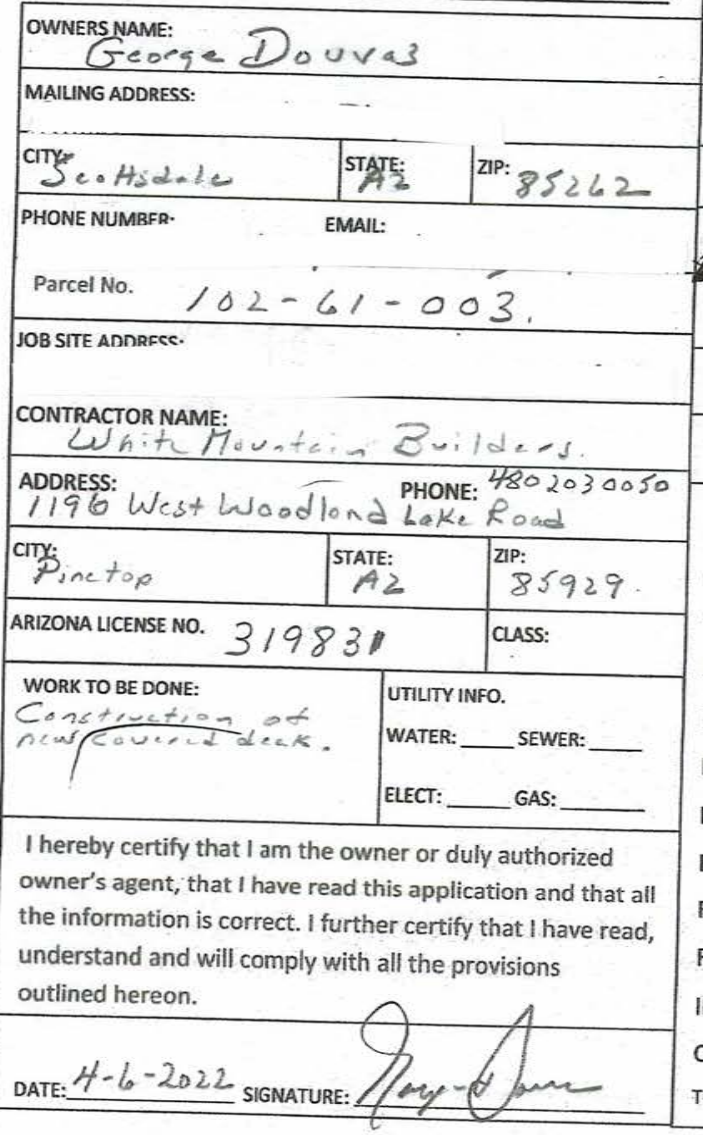 OWNERS NAME:
George Douvas
MAILING ADDRESS:
CITY: Scottsdale STATE: AZ ZIP: 85262
PHONE NUMBER: EMAIL:
Parcel No. 102-61-003.
JOB SITE ADDRESS:
CONTRACTOR NAME:
White Mountain Builders.
ADDRESS: PHONE: 4802030050
1196 West Woodland Lake Road
CITY: STATE: ZIP:
Pinetop AZ 85929.
ARIZONA LICENSE NO. 319831 CLASS:
WORK TO BE DONE:
Construction of
new covered deck.
UTILITY INFO.
WATER: ____ SEWER: ____
ELECT: ____ GAS: ____
I hereby certify that I am the owner or duly authorized
owner's agent, that I have read this application and that all
the information is correct. I further certify that I have read,
understand and will comply with all the provisions
outlined hereon.
DATE: 4-6-2022 SIGNATURE: